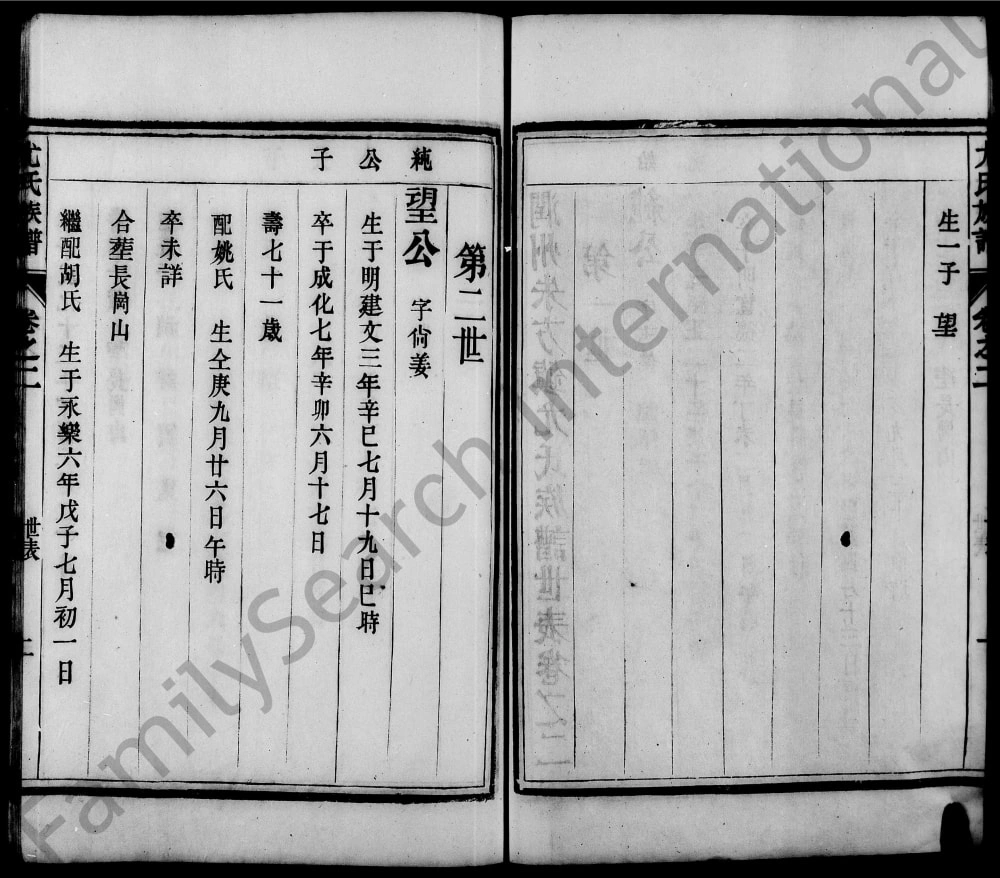 尤氏族譜
卷之二
生一子 望
第二世
純公子
望公 字尙姜
生于明建文三年辛巳七月十九日巳時
卒于成化七年辛卯六月十七日
壽七十一歲
配姚氏 生仝庚九月廿六日午時
卒未詳
合塟長崗山
繼配胡氏 生于永樂六年戊子七月初一日
尤氏族譜
卷之二
世表
二
FamilySearch International